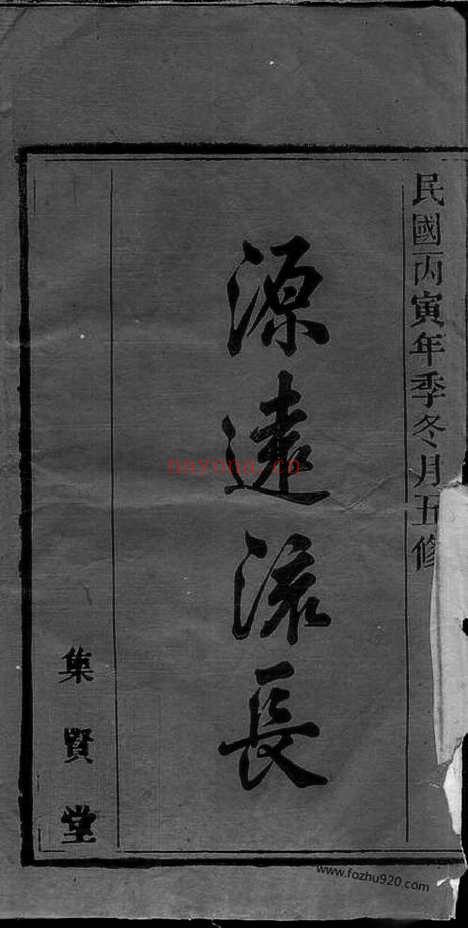 民國丙寅年季冬月五修
源遠流長
集賢堂
nayona.cn
www.fozhu920.com